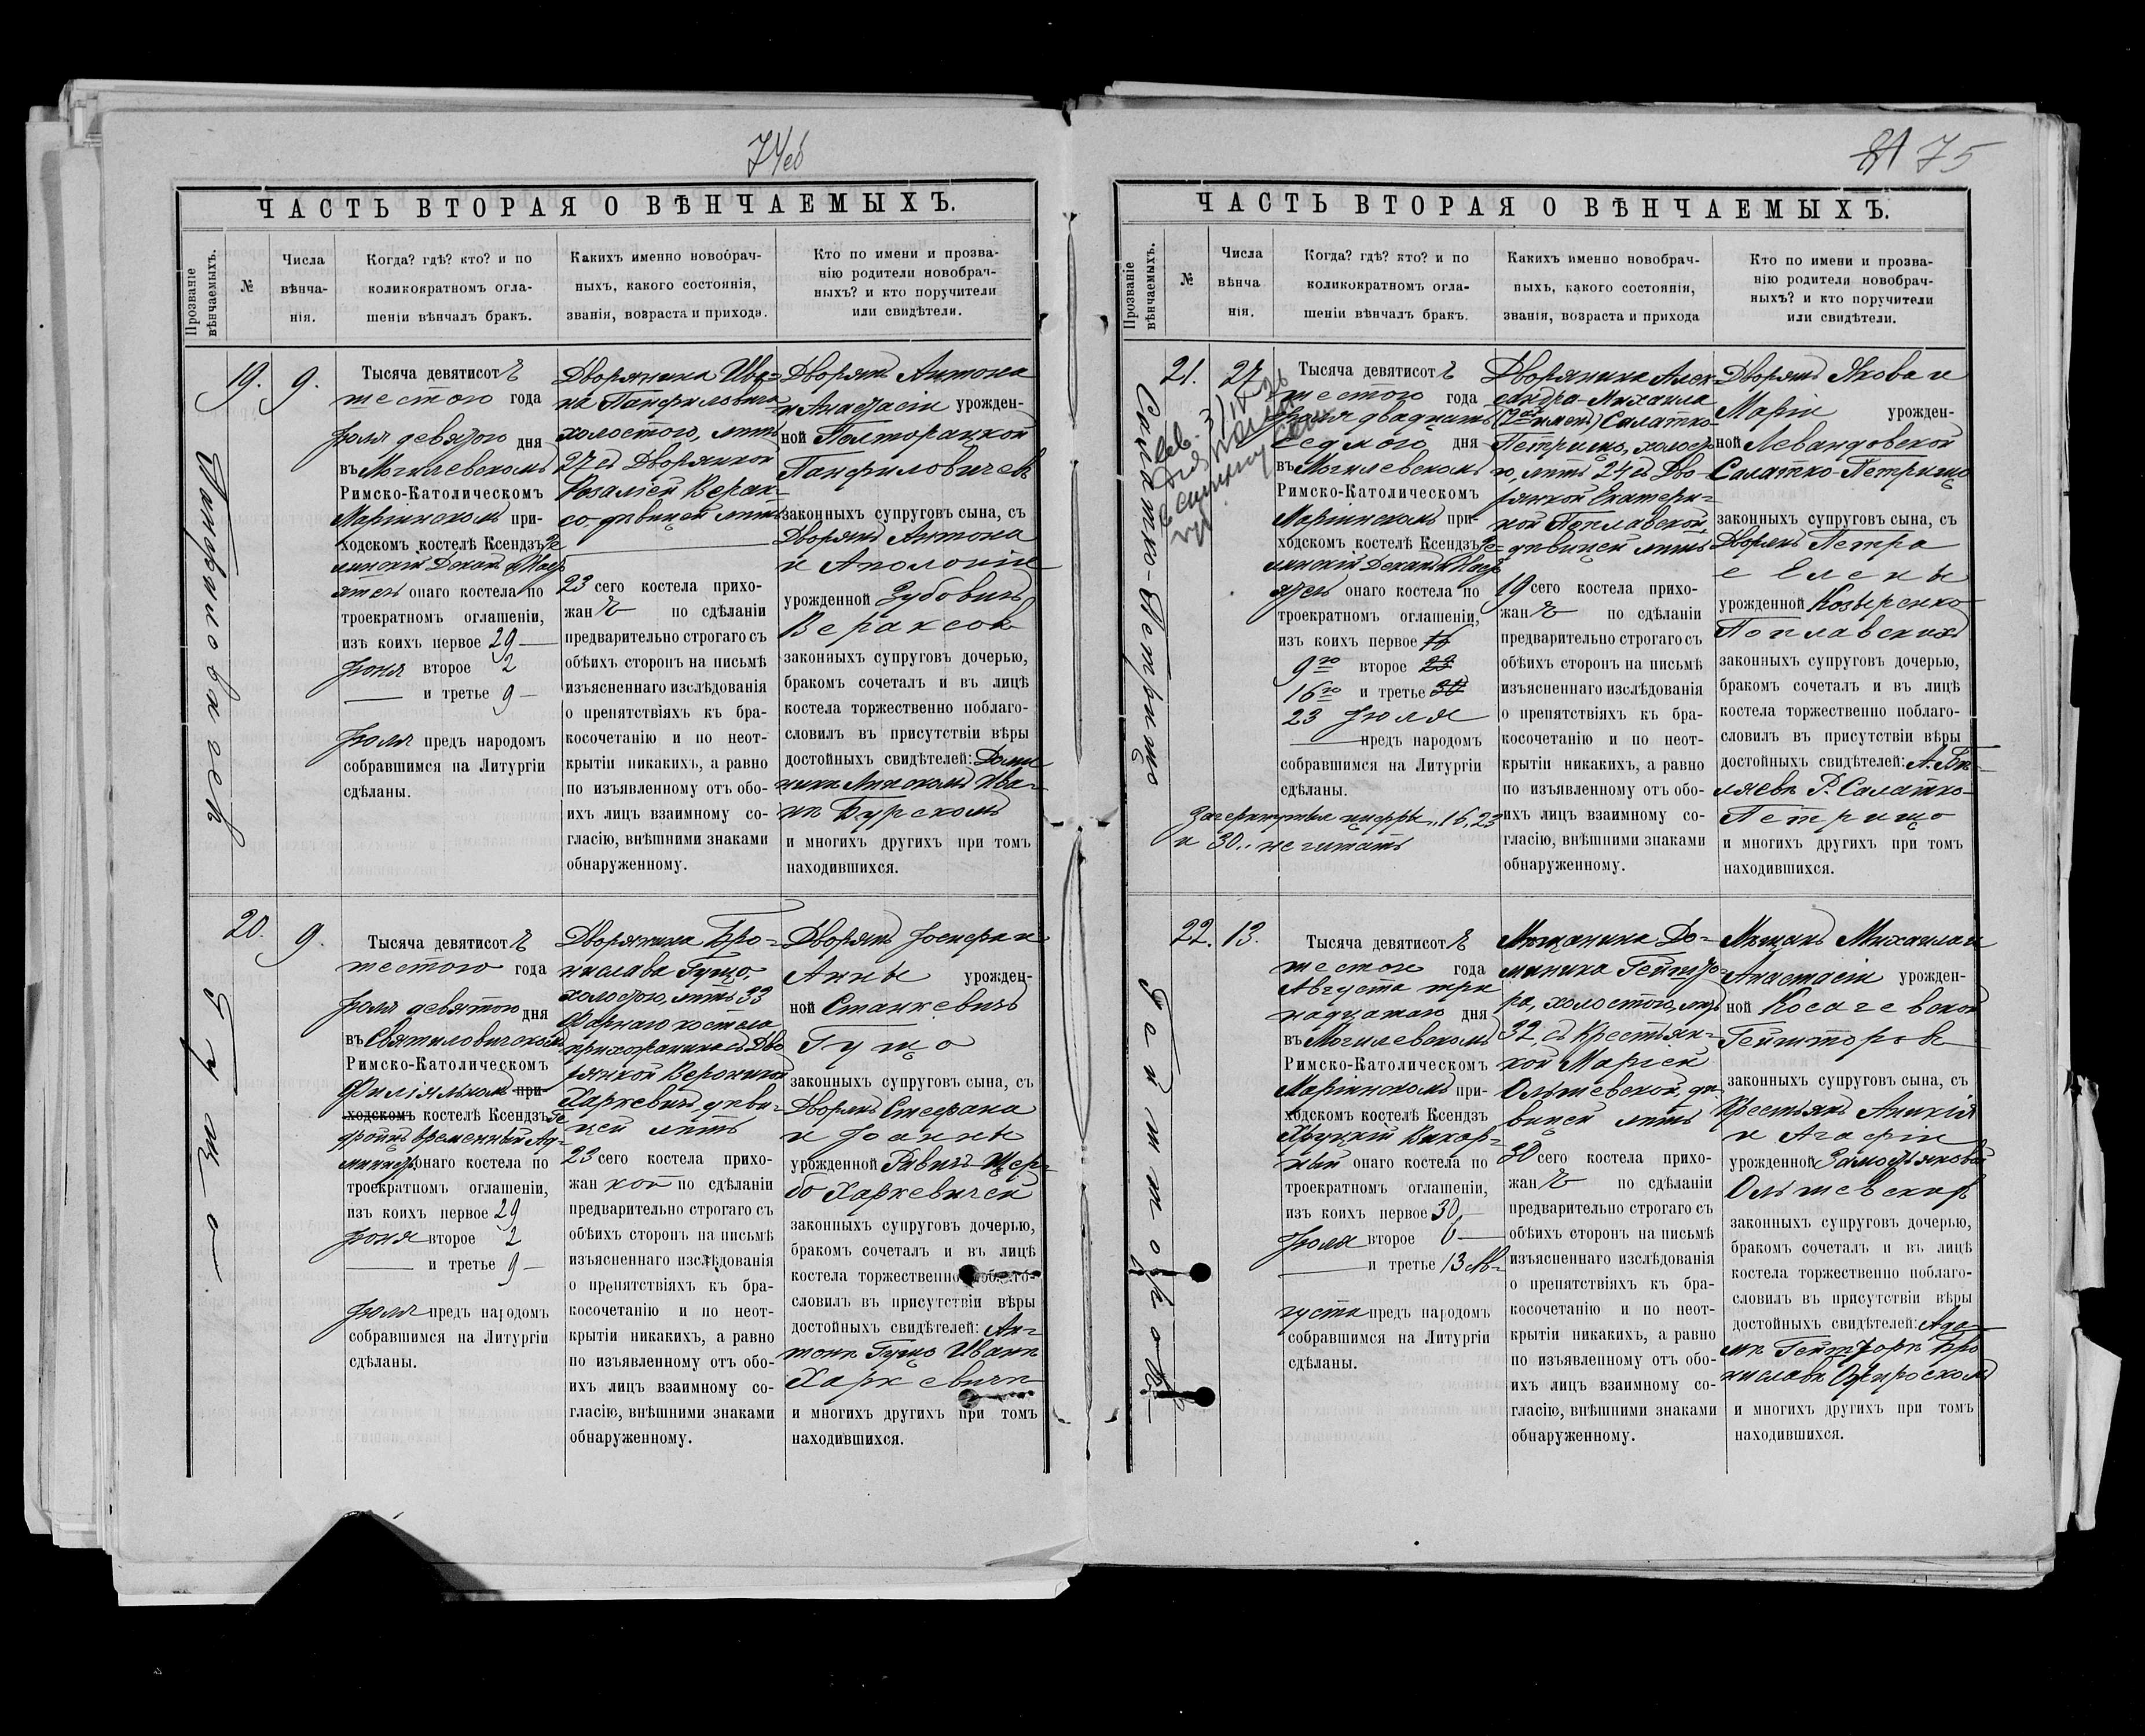 74об
ЧАСТЬ ВТОРАЯ О ВѢНЧАЕМЫХЪ.
Прозваніе вѣнчаемыхъ.
№
Числа вѣнча-
нія.
Когда? гдѣ? кто? и по
коликократномъ огла-
шеніи вѣнчалъ бракъ.
Какихъ именно новобрач-
ныхъ, какого состоянія,
званія, возраста и прихода.
Кто по имени и прозва-
нію родители новобрач-
ныхъ? и кто поручители
или свидѣтели.
Панфиловичъ
19.
9.
Тысяча девятисотъ
шестого года
Іюля девятого дня
въ Могилевскомъ
Римско-Католическомъ
Маріинскомъ при-
ходскомъ костелѣ Ксендзъ
Деканъ
онаго костела по
троекратномъ оглашеніи,
изъ коихъ первое 29
Іюня второе 2
и третье 9
Іюля предъ народомъ
собравшимся на Литургіи
сдѣланы.
Дворянина Ива-
на Панфиловича
холостого, лѣтъ
27 съ Дворянкой
Розаліей Верак-
со- дѣвицей лѣтъ
23 сего костела прихо-
жан по сдѣланіи
предварительно строгаго съ
обѣихъ сторонъ на письмѣ
изъясненнаго изслѣдованія
о препятствіяхъ къ бра-
косочетанію и по неот-
крытіи никакихъ, а равно
по изъявленному отъ обо-
ихъ лицъ взаимному со-
гласію, внѣшними знаками
обнаруженному.
Дворянъ Антона
и Анастасіи урожден-
ной Полторацкой
Панфиловичевъ
законныхъ супруговъ сына, съ
Дворянъ Антона
и Аполоніи
урожденной Зубовичъ
Вераксовъ
законныхъ супруговъ дочерью,
бракомъ сочеталъ и въ лицѣ
костела торжественно поблаго-
словилъ въ присутствіи вѣры
достойныхъ свидѣтелей: Доми
никѣ Ива-
нѣ Бурскомъ
и многихъ другихъ при томъ
находившихся.
Гущо
20.
9.
Тысяча девятисотъ
шестого года
Іюля девятого дня
въ Святиловичскомъ
Римско-Католическомъ
Филіальномъ при-
ходскомъ костелѣ Ксендзъ Ге
дройцъ временный Ад-
министр. онаго костела по
троекратномъ оглашеніи,
изъ коихъ первое 29
Іюня второе 2
и третье 9
Іюля предъ народомъ
собравшимся на Литургіи
сдѣланы.
Дворянина Бро-
нислава Гущо,
холостого, лѣтъ 33
Фарнаго костела
прихожанина съ Дво
рянкой Вероникой
Харкевичъ, дѣви-
цей лѣтъ
23 сего костела прихо-
жан кой по сдѣланіи
предварительно строгаго съ
обѣихъ сторонъ на письмѣ
изъясненнаго изслѣдованія
о препятствіяхъ къ бра-
косочетанію и по неот-
крытіи никакихъ, а равно
по изъявленному отъ обо-
ихъ лицъ взаимному со-
гласію, внѣшними знаками
обнаруженному.
Дворянъ Іосифа и
Анны урожден-
ной Станкевичъ
Гущо
законныхъ супруговъ сына, съ
Дворянъ Стефана
и Іоанны
урожденной Равичъ-Щер-
бо Харкевичей
законныхъ супруговъ дочерью,
бракомъ сочеталъ и въ лицѣ
костела торжественно поблаго-
словилъ въ присутствіи вѣры
достойныхъ свидѣтелей: Ан-
тонѣ Гущо Иванѣ
Харкевичѣ
и многихъ другихъ при томъ
находившихся.
81 75
ЧАСТЬ ВТОРАЯ О ВѢНЧАЕМЫХЪ.
Прозваніе вѣнчаемыхъ.
№
Числа вѣнча
нія.
Когда? гдѣ? кто? и по
коликократномъ огла-
шеніи вѣнчалъ бракъ.
Какихъ именно новобрач-
ныхъ, какого состоянія,
званія, возраста и прихода
Кто по имени и прозва-
нію родители новобрач-
ныхъ? и кто поручители
или свидѣтели.
Салатко-Петрищо
21.
27
Тысяча девятисотъ
шестого года
Іюля двадцать
седмого дня
въ Могилевскомъ
Римско-Католическомъ
Маріинскомъ при-
ходскомъ костелѣ Ксендзъ
Деканъ
онаго костела по
троекратномъ оглашеніи,
изъ коихъ первое 16
9го второе 23
16го и третье 30
23 Іюля
предъ народомъ
собравшимся на Литургіи
сдѣланы.
Зачеркнутыя цифры "16, 23
и 30" не читать
Дворянина Алек-
сандра-Михаила
(2хъ именъ) Салатко-
Петрищо, холосто
го, лѣтъ 24 съ Дво-
рянкой Екатери-
ной Поплавской,
дѣвицей лѣтъ
19 сего костела прихо-
жан по сдѣланіи
предварительно строгаго съ
обѣихъ сторонъ на письмѣ
изъясненнаго изслѣдованія
о препятствіяхъ къ бра-
косочетанію и по неот-
крытіи никакихъ, а равно
по изъявленному отъ обо-
ихъ лицъ взаимному со-
гласію, внѣшними знаками
обнаруженному.
Дворянъ Якова и
Маріи урожден-
ной Левандовской
Салатко-Петрищо
законныхъ супруговъ сына, съ
Дворянъ Петра
и Елены
урожденной
Поплавскихъ
законныхъ супруговъ дочерью,
бракомъ сочеталъ и въ лицѣ
костела торжественно поблаго-
словилъ въ присутствіи вѣры
достойныхъ свидѣтелей: А. Бѣ-
ляевѣ Р. Салатко-
Петрищо
и многихъ другихъ при томъ
находившихся.
Гейшторъ
22.
13.
Тысяча девятисотъ
шестого года
Августа три
надцатаго дня
въ Могилевскомъ
Римско-Католическомъ
Маріинскомъ при-
ходскомъ костелѣ Ксендзъ
Хруцкій Викар-
ный онаго костела по
троекратномъ оглашеніи,
изъ коихъ первое 30
Іюля второе 6
и третье 13 Ав-
густа предъ народомъ
собравшимся на Литургіи
сдѣланы.
Мѣщанина До-
миника Гейшто-
ра, холостого, лѣтъ
32, съ Крестьян-
кой Маріей
Ольшевской, дѣ-
вицей лѣтъ
30 сего костела прихо-
жан по сдѣланіи
предварительно строгаго съ
обѣихъ сторонъ на письмѣ
изъясненнаго изслѣдованія
о препятствіяхъ къ бра-
косочетанію и по неот-
крытіи никакихъ, а равно
по изъявленному отъ обо-
ихъ лицъ взаимному со-
гласію, внѣшними знаками
обнаруженному.
Мѣщанъ Михаила и
Анастасіи урожден-
ной Косачевской
Гейшторовъ
законныхъ супруговъ сына, съ
Крестьянъ Аникія
и Агафіи
урожденной
Ольшевскихъ
законныхъ супруговъ дочерью,
бракомъ сочеталъ и въ лицѣ
костела торжественно поблаго-
словилъ въ присутствіи вѣры
достойныхъ свидѣтелей: Ада-
мѣ Гейшторѣ Бро
ниславѣ
и многихъ другихъ при томъ
находившихся.